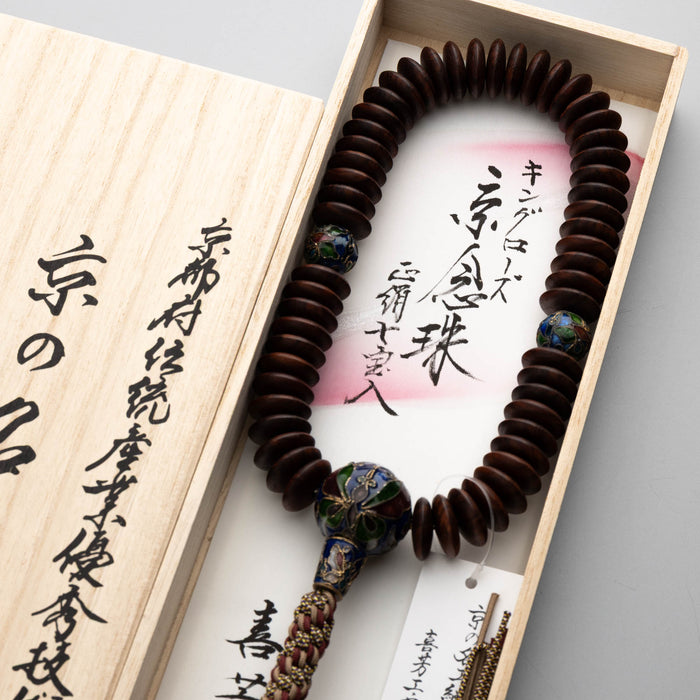 京都府伝統産業優秀技
京の名
キングローズ
京念珠
正絹七宝入
喜芳
京の
喜芳